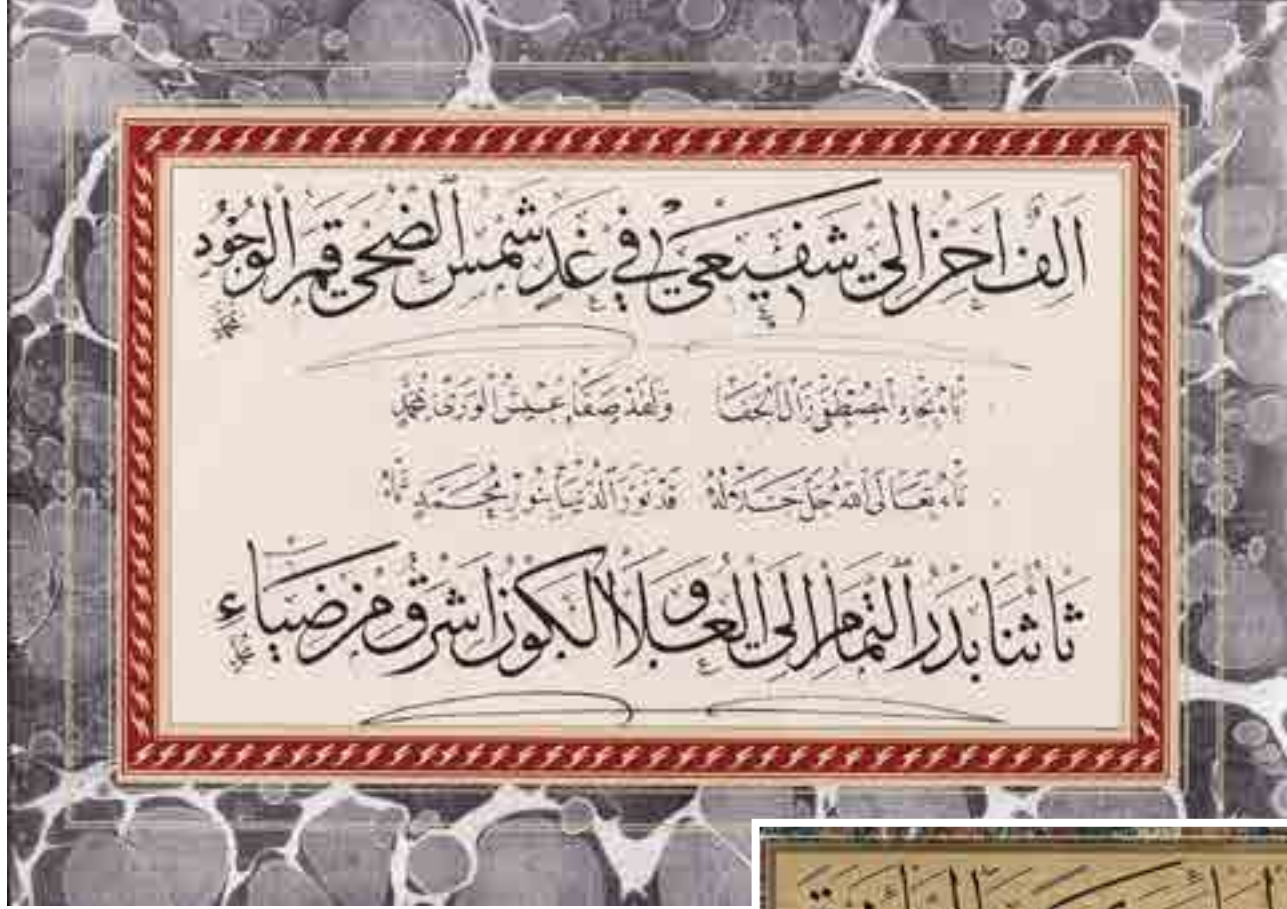 الف احن الى شفيعي في غد شمس الضحى قمر الوجود
محمد
باء بجاه المصطفى زال الجفا ولقد صفا عيش الورى بمحمد
تاء تعالى الله جل جلاله قد نور الدنيا بنور محمد تاء
ثا ثنا بدر التمام الى العلا والكون اشرق من ضياء
محمد